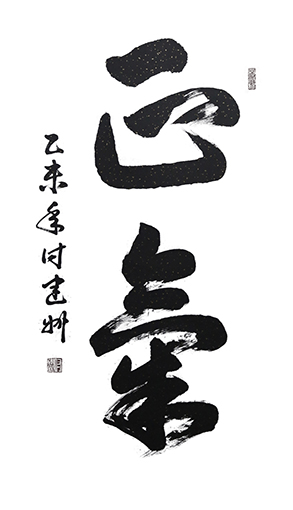 正氣
乙未年付建州